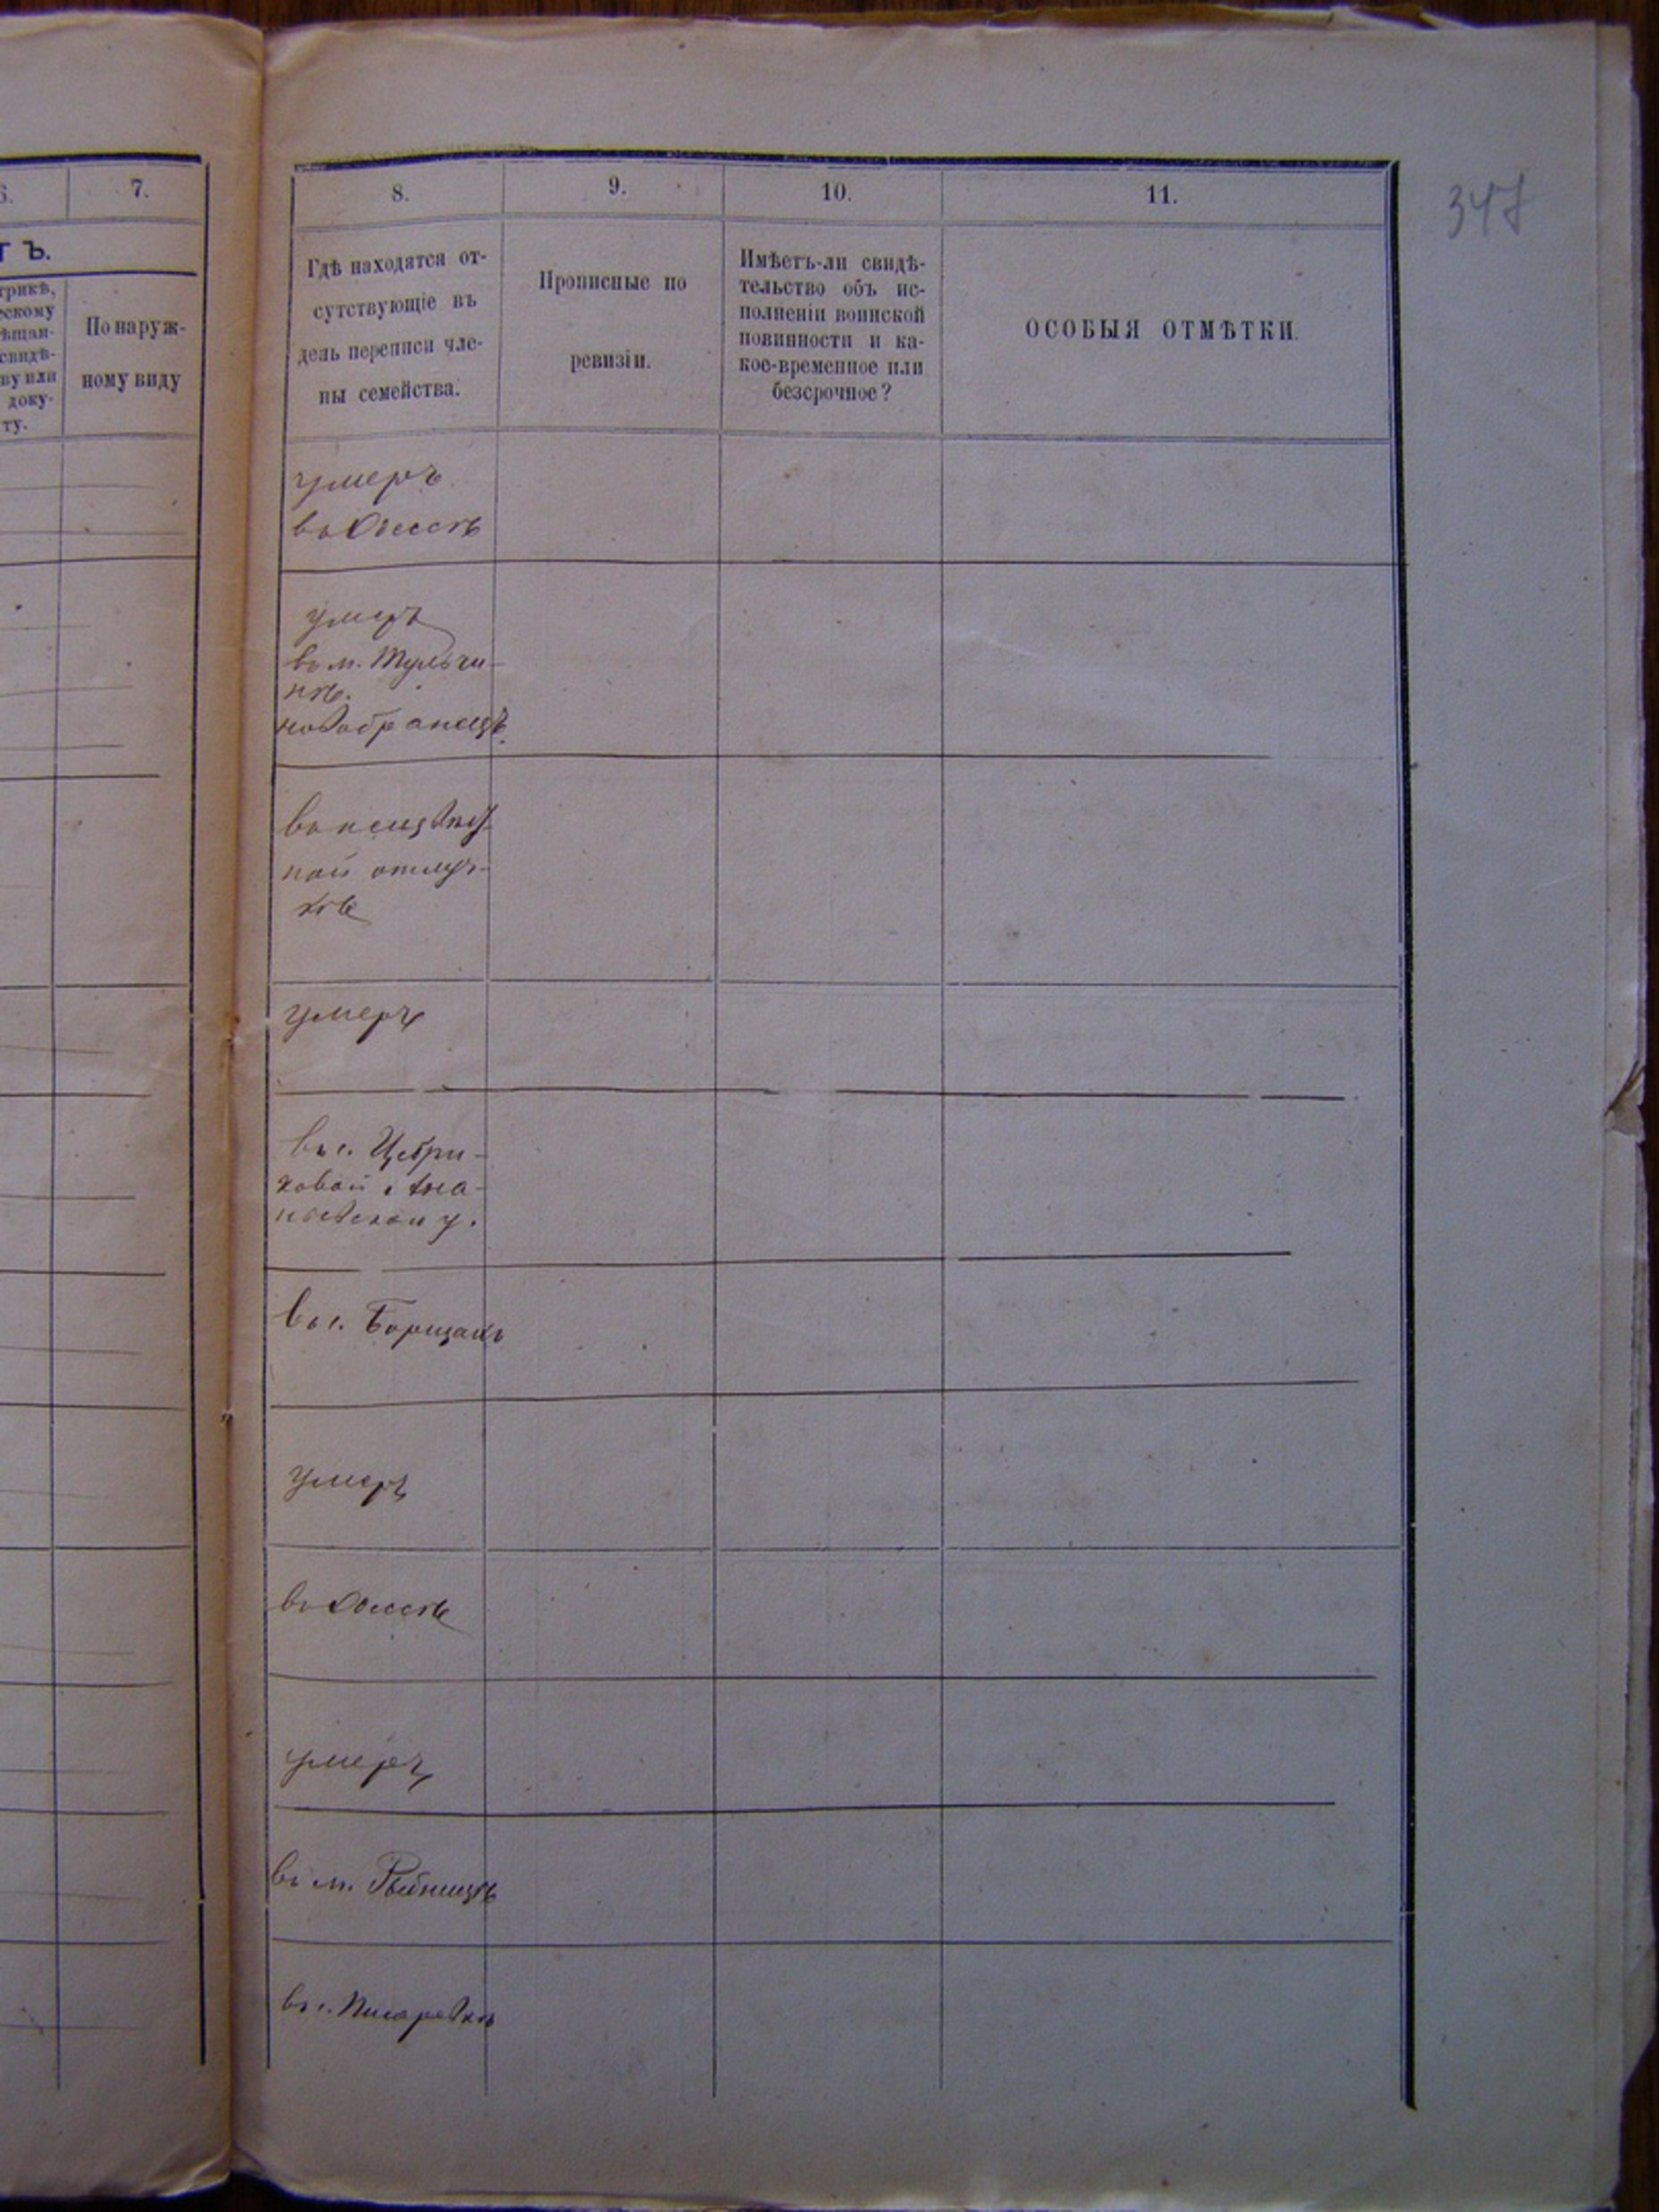 6.
7.
тъ.
По наруж-
ному виду
8.
9.
10.
11.
347
Гдѣ находятся от-
сутствующіе въ
день переписи чле-
ны семейства.
Прописные по
ревизіи.
Имѣетъ-ли свидѣ-
тельство объ ис-
полненіи воинской
повинности и ка-
кое-временное или
безсрочное?
ОСОБЫЯ ОТМѢТКИ.
умеръ
въ Одессѣ
умеръ
въ м. Тульчи-
нѣ.
новобранецъ.
въ неизвѣст-
ной отлуч-
кѣ
умеръ
въ с. Цебри-
ковой Ана-
ньевскаго у.
въ с. Борщахъ
умеръ
въ Одессѣ
умеръ
въ м. Рыбницѣ
въ с. Писаревкѣ